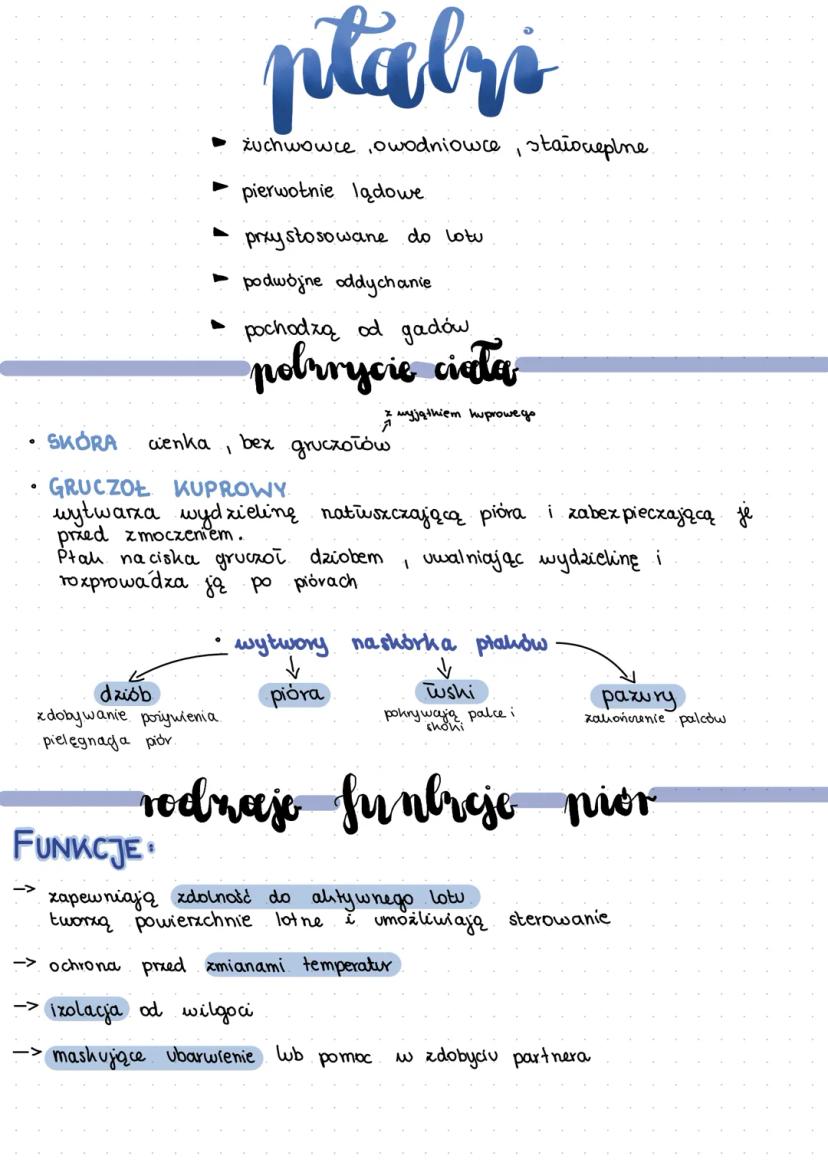 ptaki
► żuchwowce, owodniowce, stałocieplne
► pierwotnie lądowe
► przystosowane do lotu
► podwójne oddychanie
► pochodzą od gadów
pokrycie ciała
z wyjątkiem kuprowego
• SKÓRA cienka, bez gruczołów
• GRUCZOŁ KUPROWY
wytwarza wydzielinę natłuszczającą pióra i zabezpieczającą je
przed zmoczeniem.
Ptak naciska gruczoł dziobem, uwalniając wydzielinę i
rozprowadza ją po piórach
• wytwory naskórka ptaków
dziób pióra łuski pazury
zdobywanie pożywienia pokrywają palce i zakończenie palców
skoki
pielęgnacja piór
rodzaje funkcje piór
FUNKCJE:
-> zapewniają zdolność do aktywnego lotu
tworzą powierzchnie lotne i umożliwiają sterowanie
-> ochrona przed zmianami temperatur
-> izolacja od wilgoci
-> maskujące ubarwienie lub pomoc w zdobyciu partnera